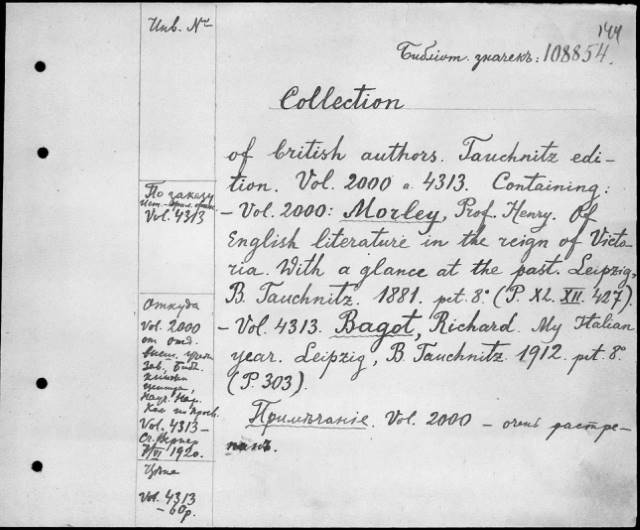 Инв. №
144
Библіот. значекъ: 108854.
Collection
of british authors. Tauchnitz edi-
tion. Vol. 2000 a. 4313. Containing:
- Vol. 2000: Morley, Prof. Henry. Of
English literature in the reign of Victo-
ria. With a glance at the past. Leipzig,
B. Tauchnitz. 1881. pet. 8.° (P. XL. XII. 427).
- Vol. 4313. Bagot, Richard. My Italian
year. Leipzig, B. Tauchnitz. 1912. pet. 8.°
(P. 303).
Примѣчаніе. Vol. 2000 – очень растре-
панъ.
По заказу
Vol. 4313
Откуда
Vol. 2000
от отд.
высш. учебн
зав., Библ.
Vol. 4313 –
1920.
Цѣна
Vol. 4313
– 60 р.